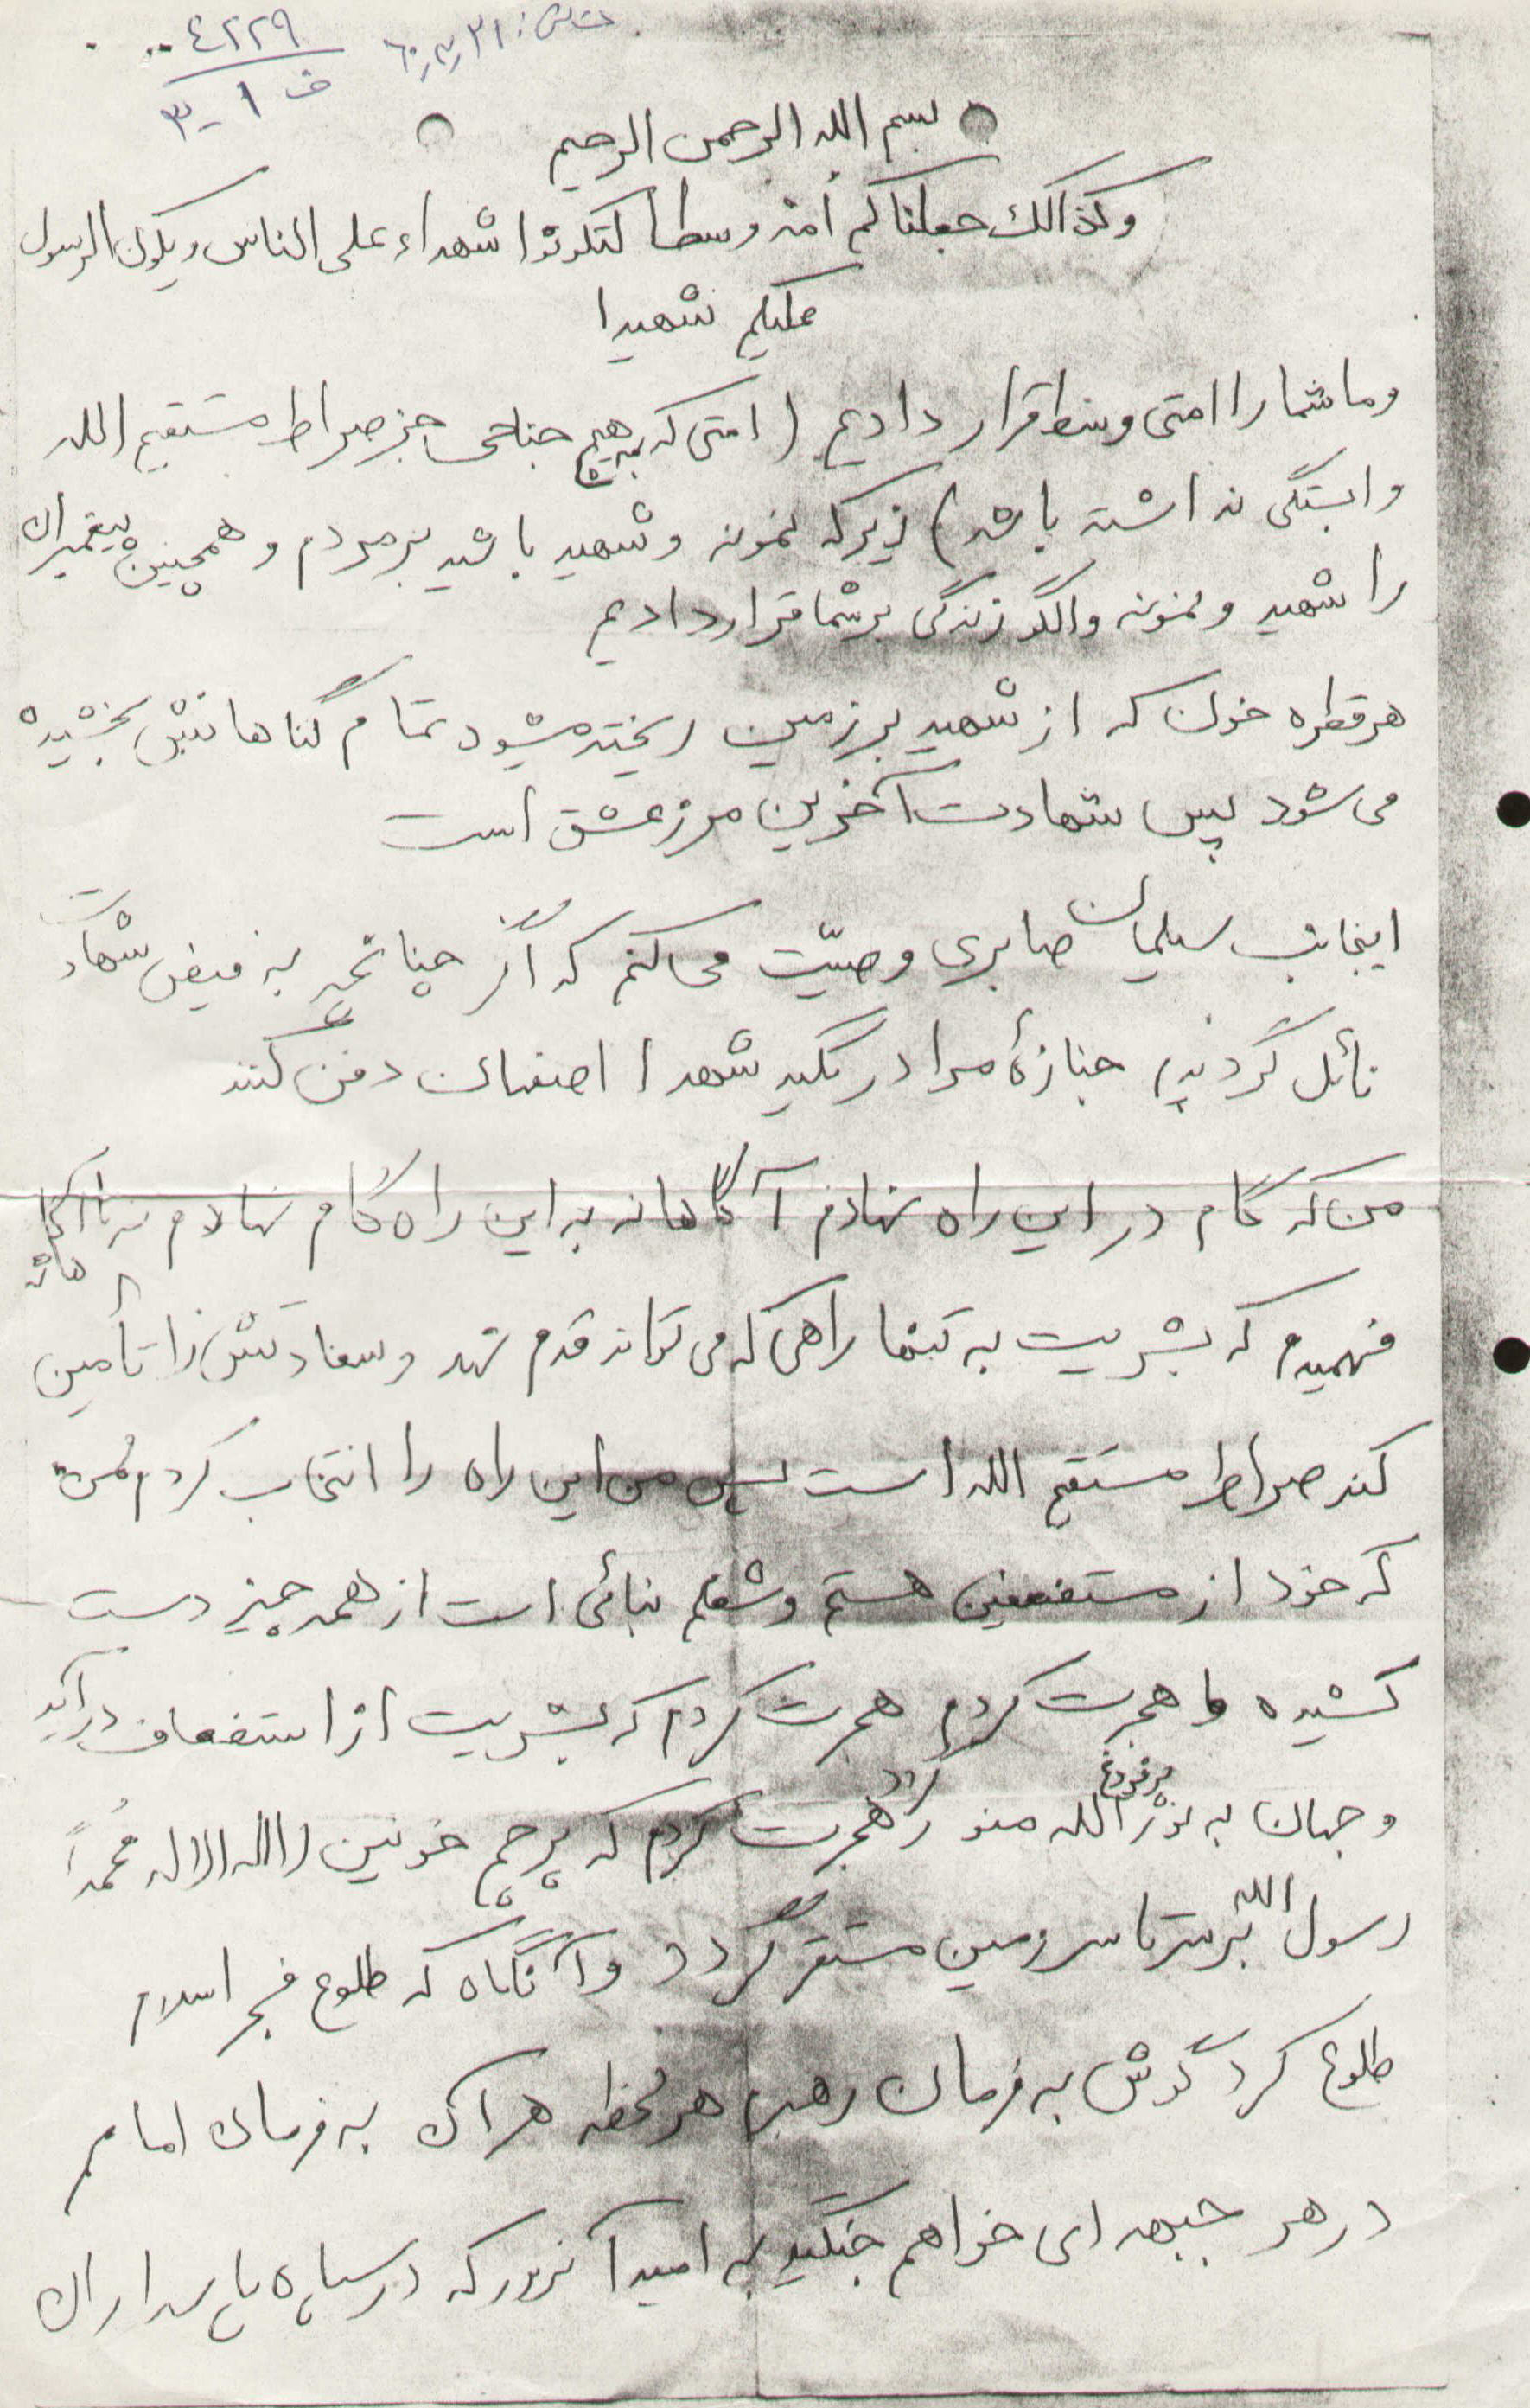 ۴۲۲۹
ف ۱-۳
۶۰٫۷٫۲۱
بسم الله الرحمن الرحیم
وکذالک جعلناکم امة وسطا لتکونوا شهداء علی الناس ویکون الرسول
علیکم شهیدا
وما شما را امتی وسط قرار دادیم (امتی که به هیچ جناحی جز صراط مستقیم الله
وابستگی نداشته باشد) زیرکه نمونه و شهید باشید بر مردم و همچنین پیغمبران
را شهید و نمونه والگو زندگی بر شما قرار دادیم
هر قطره خون که از شهید بر زمین ریخته میشود تمام گناهانش بخشیده
می شود پس شهادت آخرین مرز عشق است
اینجانب سلیمان صابری وصیّت می کنم که اگر چنانچه به فیض شهادت
نائل گردیدم جنازهٔ مرا در تکیه شهدا اصفهان دفن کنند
من که گام در این راه نهادم آگاهانه به این راه گام نهادم نه ناآگاهانه
فهمیدم که بشریت به تنها راهی که می تواند قدم نهد و سعادتش را تأمین
کند صراط مستقیم الله است پس من این راه را انتخاب کردم من
که خود از مستضعفین هستم و شغلم بنائی است از همه چیز دست
کشیده و هجرت کردم هجرت کردم که بشریت از استضعاف درآید
و جهان به نور پرفروغ الله منور گردد هجرت کردم که پرچم خونین لااله الاالله محمداً
رسول الله بر سرتاسر زمین مستقر گردد و آنگاه که طلوع فجر اسلام
طلوع کرد گوش به فرمان رهبر هر لحظه هر آن به فرمان امام
در هر جبهه ای خواهم جنگید به امید آنروز که در سپاه پاسداران